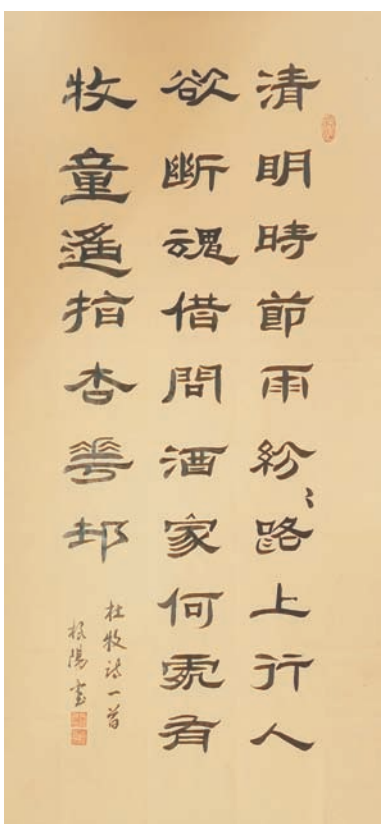 清明時節雨紛〻路上行人
欲斷魂借問酒家何處有
牧童遙指杏華邨
杜牧詩一首
陽書